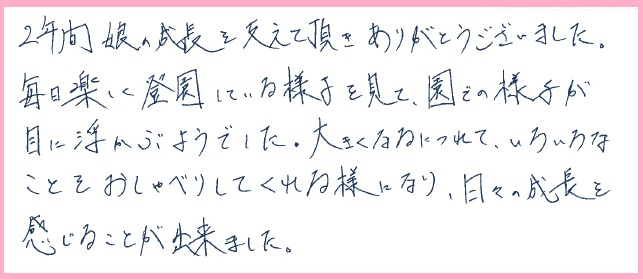 2年間 娘の成長を支えて頂きありがとうございました。
毎日楽しく登園している様子を見て、園での様子が
目に浮かぶようでした。大きくなるにつれて、いろいろな
ことをおしゃべりしてくれる様になり、日々の成長を
感じることが出来ました。